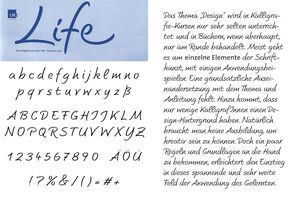 Life
abcdefghijklmno
pqrstuvwxyzß
ABCDEFGHIJKLM
NOPQRSTUVWXYZ
1234567890 ÄÖÜ
!?%&/()=#+
Das Thema „Design“ wird in Kalligra-
fie-Kursen nur sehr selten unterrich-
tet und in Büchern, wenn überhaupt,
nur am Rande behandelt. Meist geht
es um einzelne Elemente der Schrift-
kunst, mit einigen Anwendungsbei-
spielen. Eine grundsätzliche Ausei-
nandersetzung mit dem Thema und
Anleitung fehlt. Hinzu kommt, dass
nur wenige KalligrafInnen einen De-
sign-Hintergrund haben. Natürlich
braucht man keine Ausbildung, um
kreativ sein zu können. Doch ein paar
Regeln und Grundlagen an die Hand
zu bekommen, erleichtert den Einstieg
in dieses spannende und sehr weite
Feld der Anwendung des Gelernten.